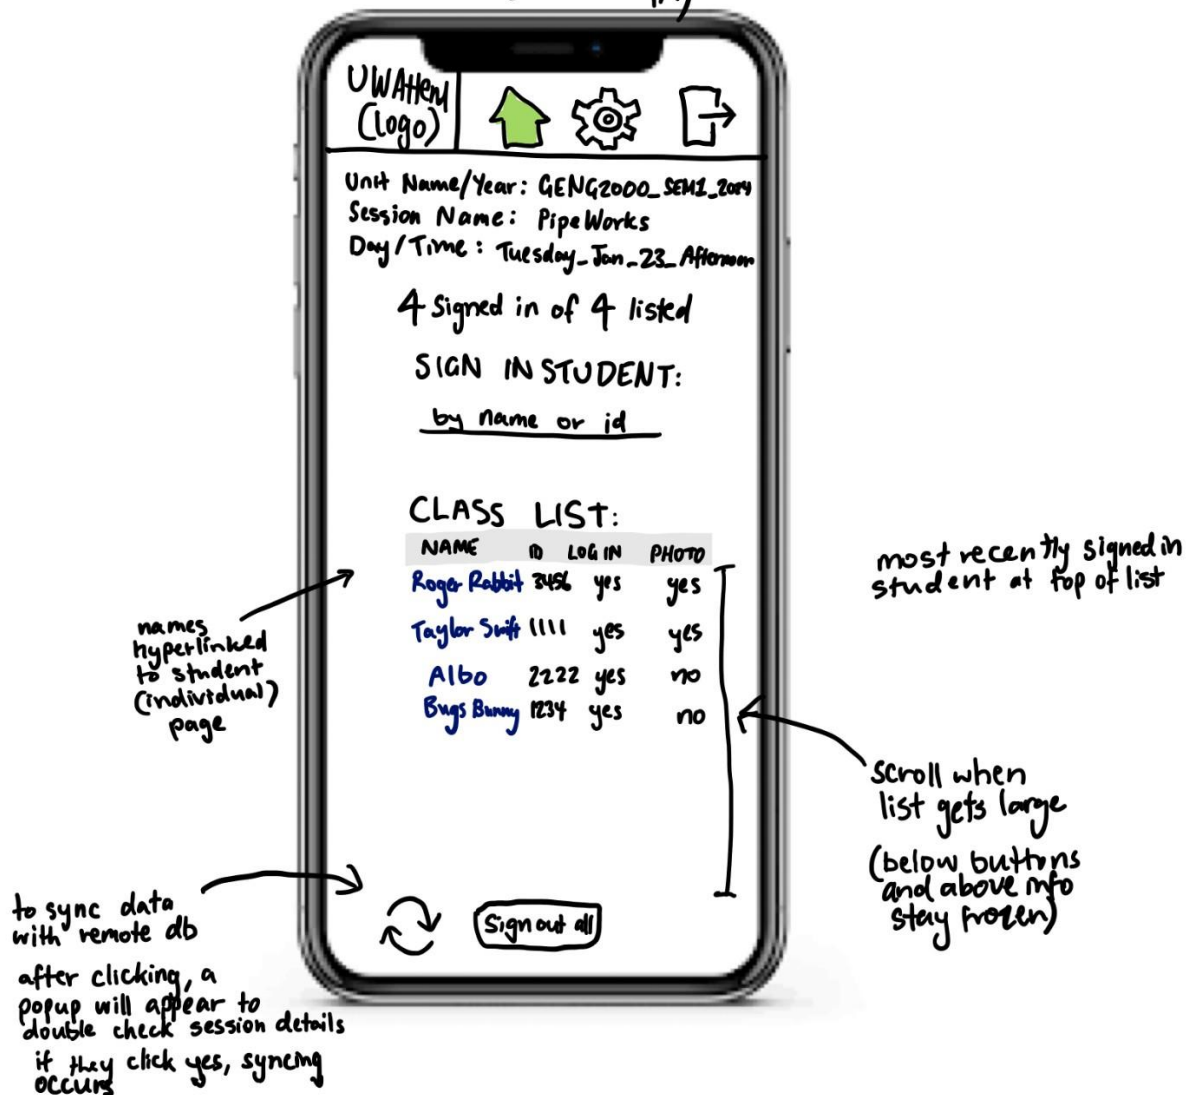 UWAttend
(logo)
Unit Name/Year: GENG2000_SEM1_2024
Session Name: PipeWorks
Day/Time: Tuesday_Jan_23_Afternoon
4 Signed in of 4 listed
SIGN IN STUDENT:
by name or id
CLASS LIST:
NAME ID LOG IN PHOTO
Roger Rabbit 3456 yes yes
Taylor Swift 1111 yes yes
Albo 2222 yes no
Bugs Bunny 1234 yes no
Sign out all
names
hyperlinked
to student
(individual)
page
most recently signed in
student at top of list
scroll when
list gets large
(below buttons
and above info
stay frozen)
to sync data
with remote db
after clicking, a
popup will appear to
double check session details
if they click yes, syncing
occurs